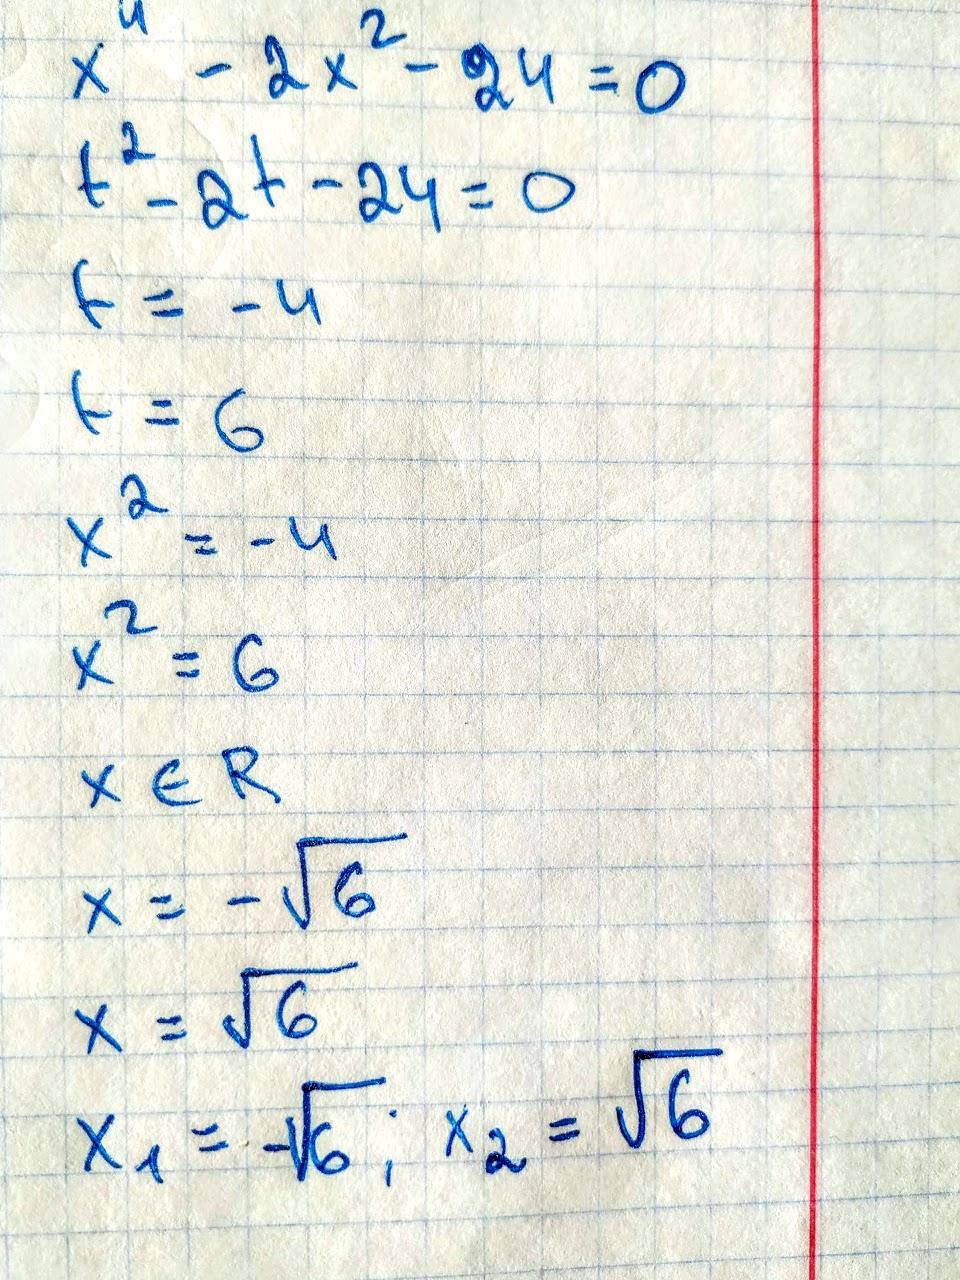 x⁴ - 2x² - 24 = 0
t² - 2t - 24 = 0
t = -4
t = 6
x² = -4
x² = 6
x ∈ R
x = -√6
x = √6
x₁ = -√6; x₂ = √6